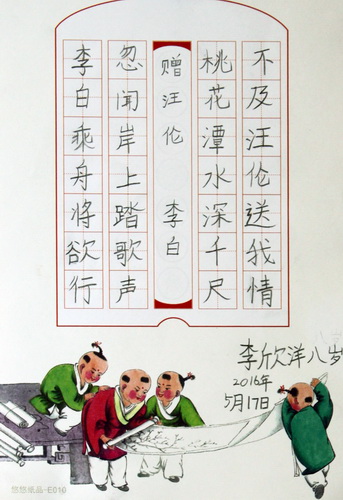 李白乘舟将欲行
忽闻岸上踏歌声
赠汪伦 李白
桃花潭水深千尺
不及汪伦送我情
李欣洋八岁
2016年
5月17日
悠悠纸品-E010